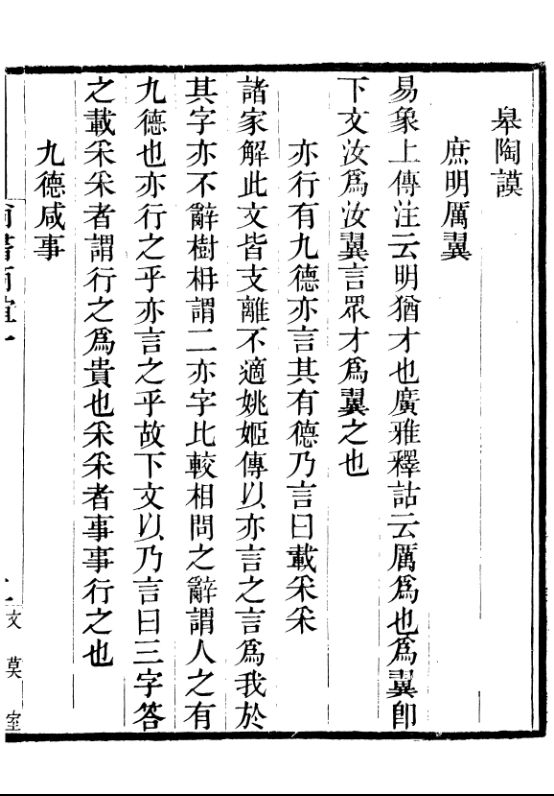 皋陶謨
庶明厲翼
易象上傳注云明猶才也廣雅釋詁云厲爲也爲翼卽
下文汝爲汝翼言眾才爲翼之也
亦行有九德亦言其有德乃言曰載采采
諸家解此文皆支離不適姚姬傳以亦言之言爲我於
其字亦不辭樹枏謂二亦字比較相問之辭謂人之有
九德也亦行之乎亦言之乎故下文以乃言曰三字答
之載采采者謂行之爲貴也采采者事事行之也
九德咸事
文莫室